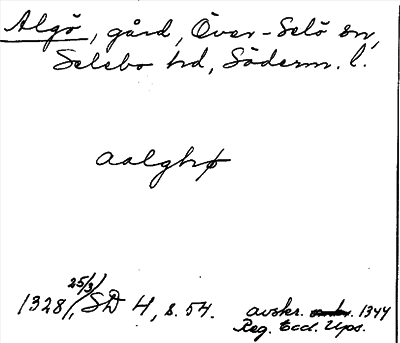 Algö, gård, Över-Selö sn,
Selebo hd, Söderm. l.
aalghø
1328 25/3, SD 4, s. 54. avskr. 1344
Reg. Eccl. Ups.